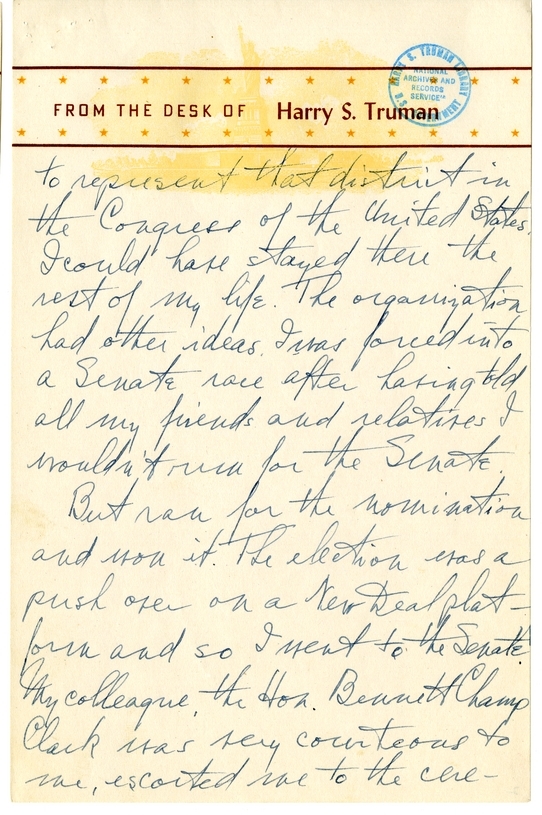 HARRY S. TRUMAN LIBRARY
NATIONAL
ARCHIVES AND
RECORDS
SERVICE
FROM THE DESK OF Harry S. Truman
to represent that district in
the Congress of the United States.
I could have stayed there the
rest of my life. The organization
had other ideas. I was forced into
a Senate race after having told
all my friends and relatives I
wouldn't run for the Senate.
But ran for the nomination
and won it. The election was a
push over on a New Deal plat-
form and so I went to the Senate
My colleague, the Hon. Bennett Champ
Clark was very courteous to
me, escorted me to the cere-